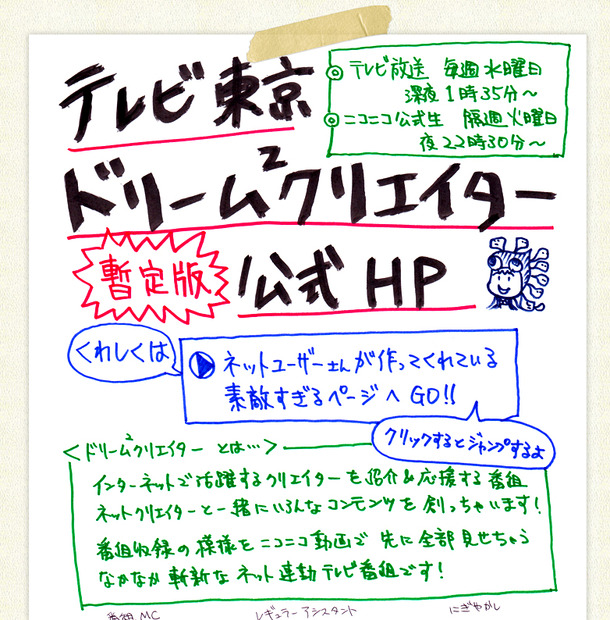 テレビ東京
◎テレビ放送 毎週水曜日
深夜1時35分〜
◎ニコニコ公式生 隔週火曜日
夜22時30分〜
ドリーム²クリエイター
暫定版
公式HP
くわしくは
▶ネットユーザーさんが作ってくれている
素敵すぎるページへGO!!
クリックするとジャンプするよ
<ドリーム²クリエイター とは…>
インターネットで活躍するクリエイターを紹介&応援する番組
ネットクリエイターと一緒にいろんなコンテンツを創っちゃいます!
番組収録の模様をニコニコ動画で先に全部見せちゃう
なかなか斬新なネット連動テレビ番組です!
番組MC
レギュラーアシスタント
にぎやかし